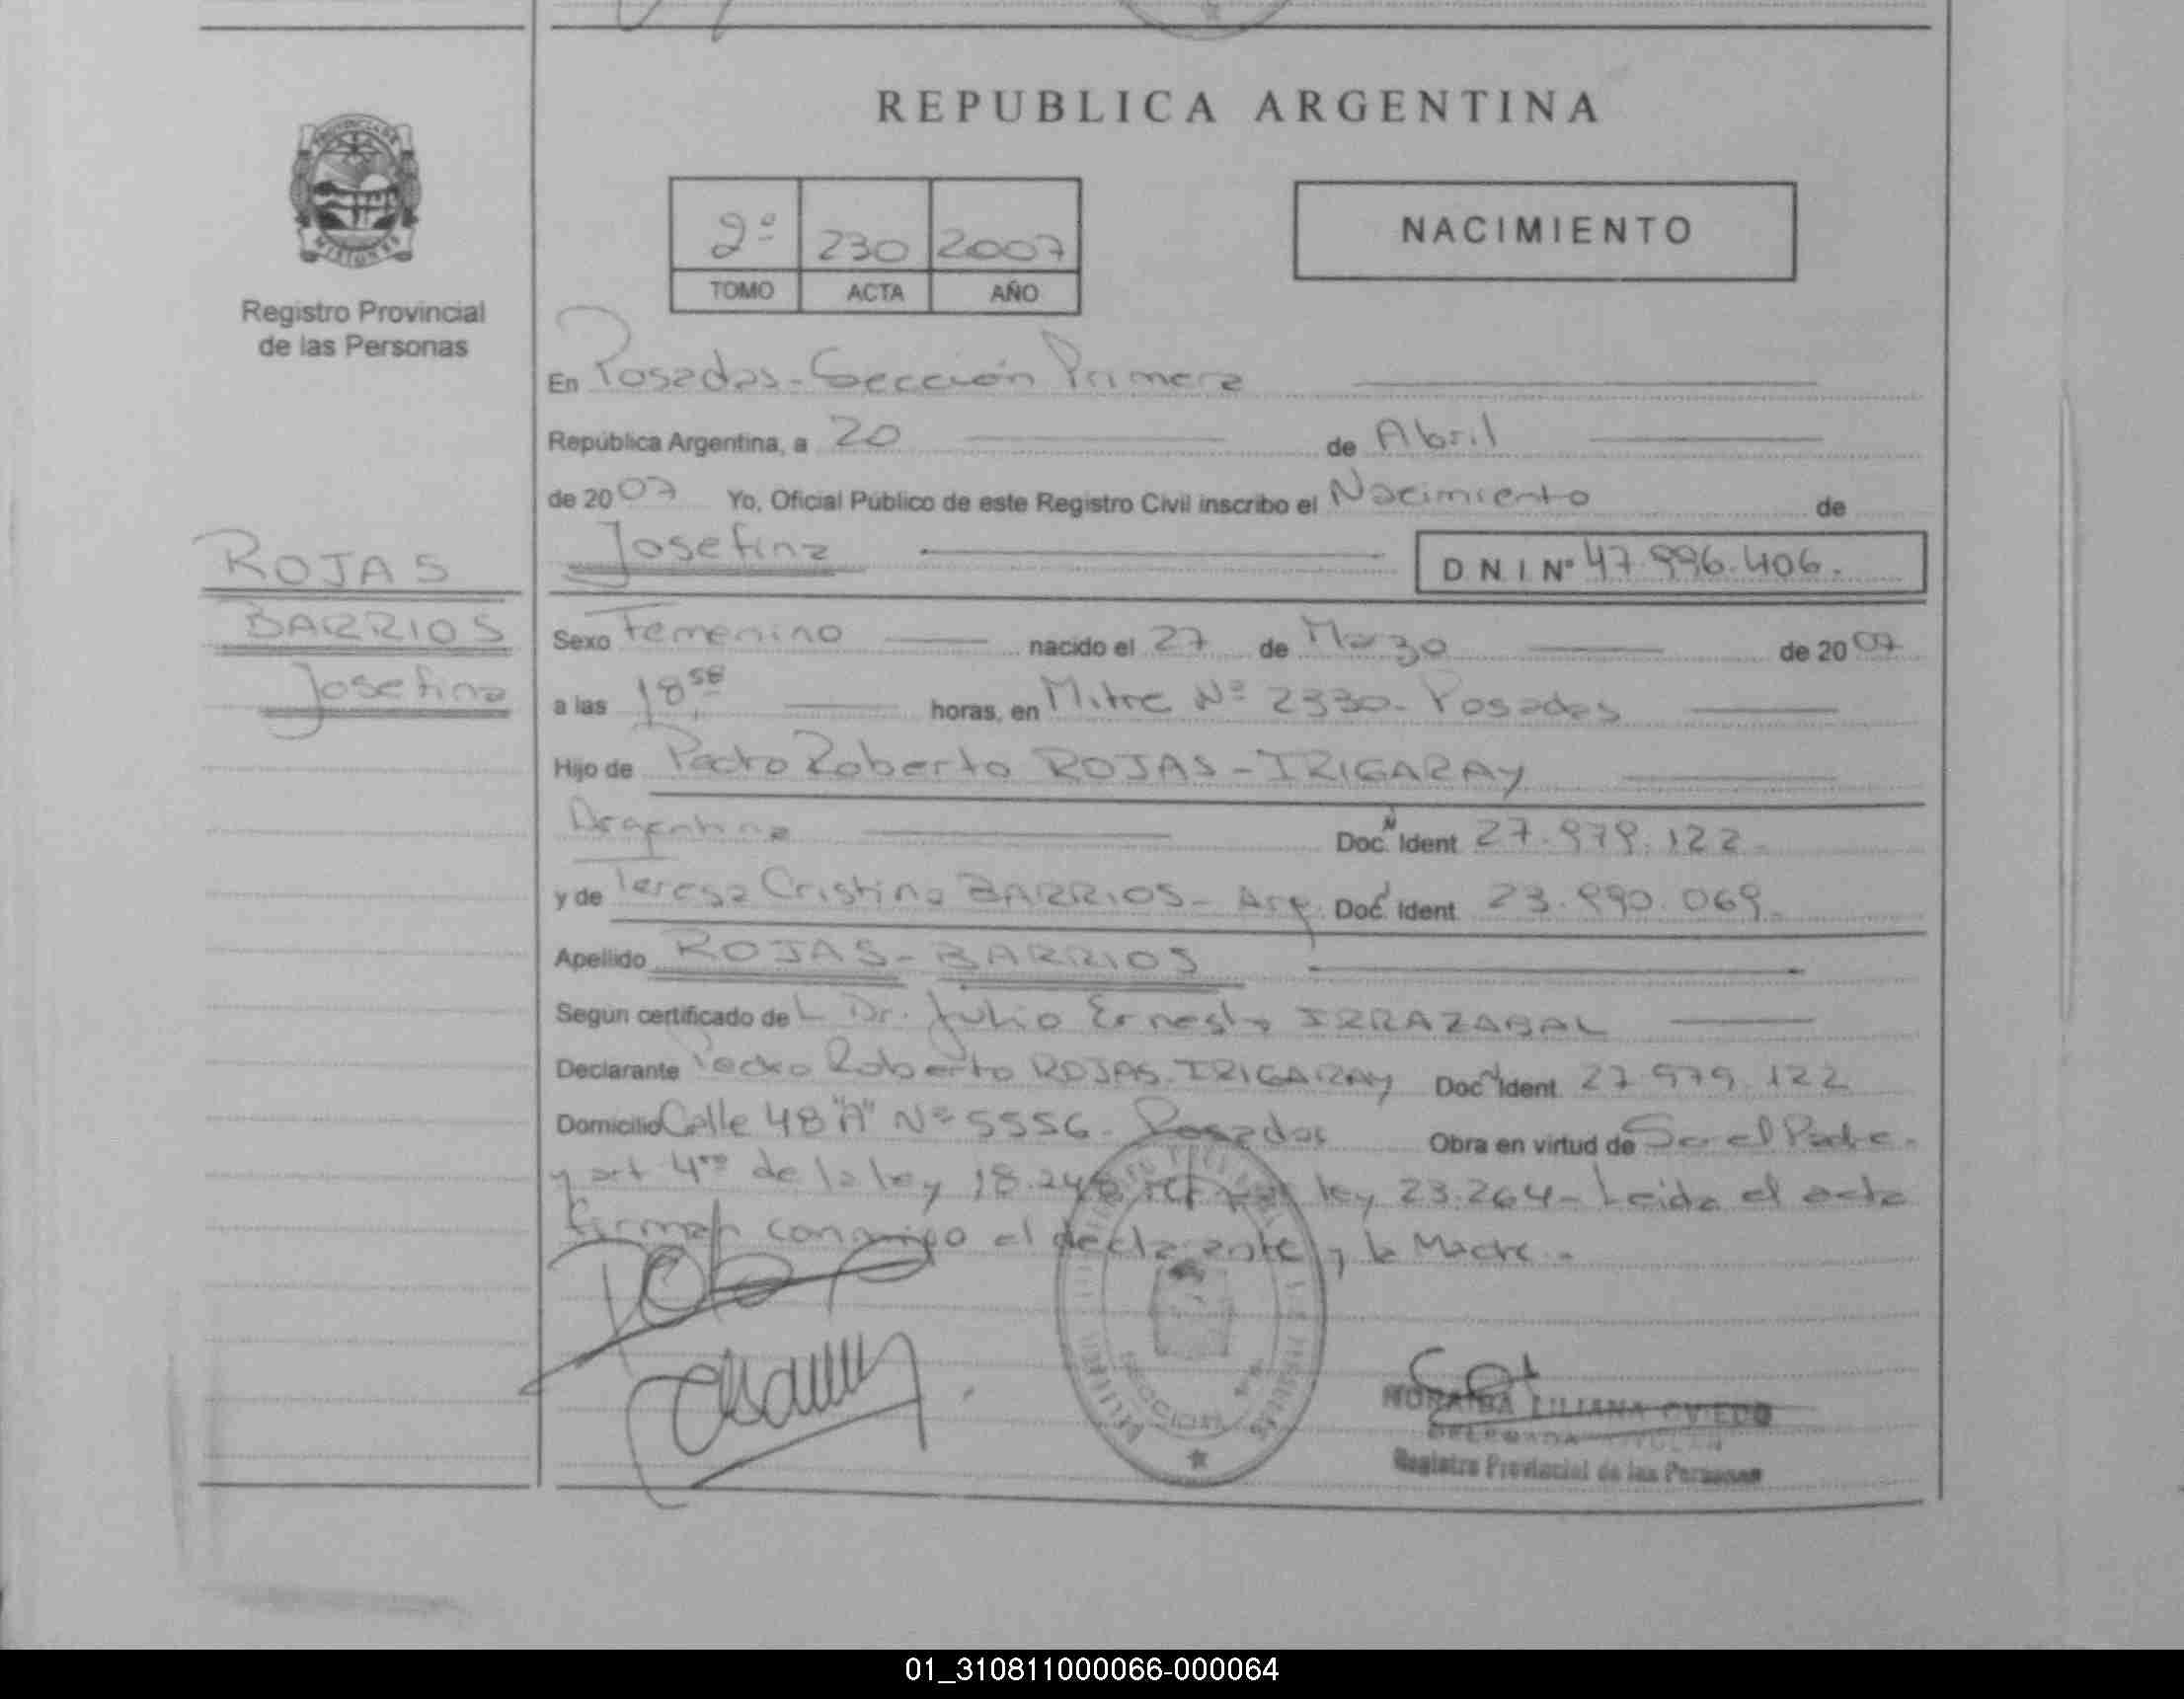 REPUBLICA ARGENTINA
PROVINCIA DE
MISIONES
Registro Provincial
de las Personas
2º 230 2007
TOMO ACTA AÑO
NACIMIENTO
En Posadas - Sección Primera
República Argentina, a 20 de Abril
de 2007 Yo, Oficial Público de este Registro Civil inscribo el Nacimiento de
Josefina D N I Nº 47.996.406.
ROJAS
BARRIOS
Josefina
Sexo Femenino nacido el 27 de Marzo de 2007
a las 18 58 horas, en Mitre Nº 2330 - Posadas
Hijo de Pedro Roberto ROJAS - IRIGARAY
Argentina Doc. Ident 27.979.122 -
y de Teresa Cristina BARRIOS - Arg. Doc. Ident 23.990.069 -
Apellido ROJAS - BARRIOS
Según certificado del Dr. Julio Ernesto IRRAZABAL
Declarante Pedro Roberto ROJAS IRIGARAY Doc. Ident 27.979.122
Domicilio Calle 48 "A" Nº 5556 - Posadas Obra en virtud de Ser el Padre -
y art 4to de la ley 18.248 ley 23.264 - Leida el acta
firman conmigo el declarante y la Madre -
SECCION
LILIANA OVIEDO
DELEGADA TITULAR
Registro Provincial de las Personas
01_310811000066-000064